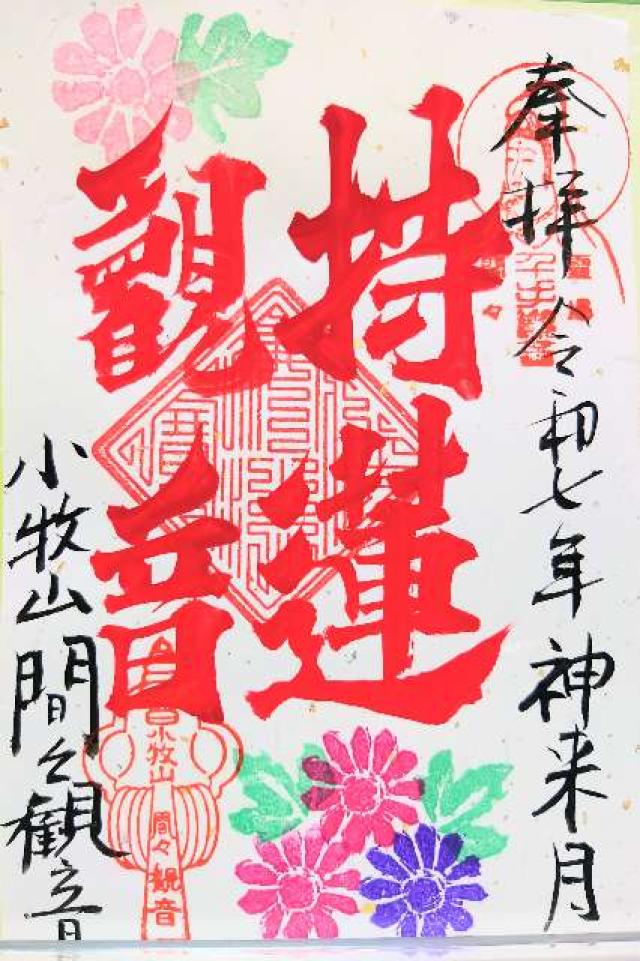 奉拝 令和七年神来月
持蓮
観音
小牧山 間々観音
小牧山
間々観音